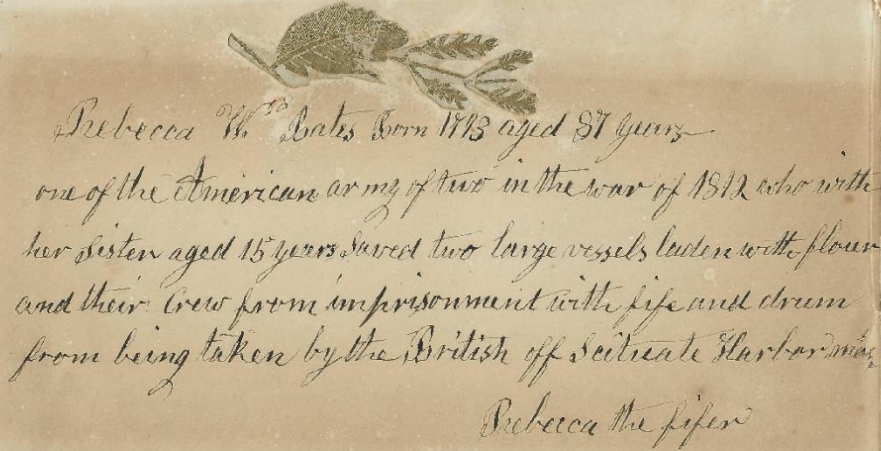 Rebecca W.ᵐ Bates Born 1793 aged 87 years
one of the American army of two in the war of 1812 who with
her sister aged 15 years saved two large vessels laden with flour
and their Crew from imprisonment with fife and drum
from being taken by the British off Scituate Harbor mas.
Rebecca the fifer